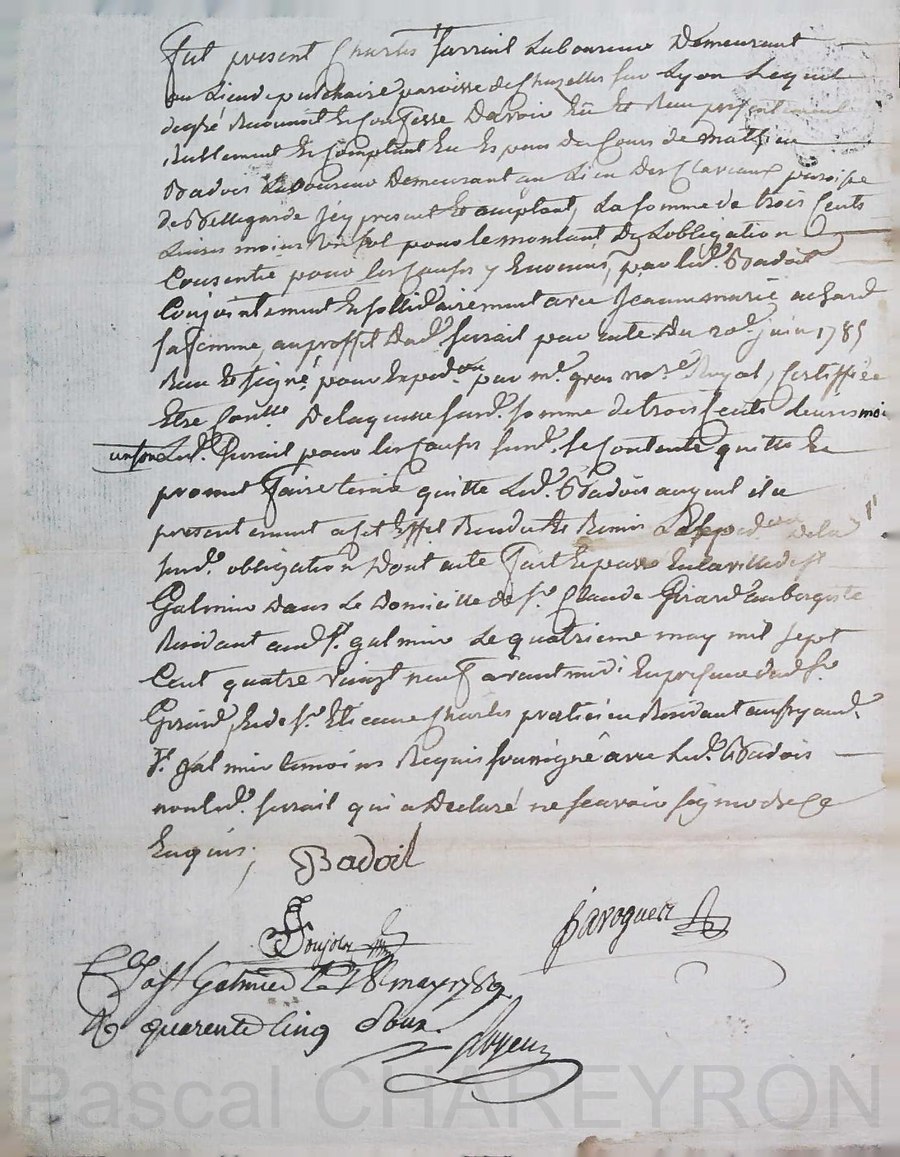 Fut present Charles Jurrail Laboureur Demeurant
au Lieu de puichaire paroisse de Chazelles sur Lyon Lequel
degré Reconnoit Et Confesse Davoir Eü Et Reçu presentement
Reellement Et Comptant En Especes Du Cours de mathieu
Badoit Laboureur Demeurant au Lieu Des Claveaux paroisse
de Bellegarde Jcy present Et acceptant, La Somme de trois Cents
Livres moins un Sol pour le montant De Lobligation
Consentie pour les Causes y Enoncées, par led. Badoit
Conjointement Et Sollidairement avec Jeanne marie achard
Sa femme, au proffit Dud. Jurrail par acte Du 20e. Juin 1785
Reçu Et Signé pour Expedon. par me. gras nore. Royal, Certiffiée
Etre Conlle. De laquelle Susd. Somme de trois Cents Livres moins
un Sou Led. Jurrail pour les Causes Susd. Se Contente quitte Et
promet Faire tenir quitte Led. Badoit auquel il a
presentement a Cet Effet Rendu Et Remis Lexpedon. De la
Susd. obligation Dont acte Fait Et passé En la ville de St
Galmier Dans Le Domicille de Sr. Claude Girard aubergiste
Residant aud. St. galmier Le quatrieme may mil Sept
Cent quatre vingt neuf avant midi En presence dud. Sr.
Girard Et de Sr. Etienne Charles praticien Residant aussy aud.
St. galmier temoins Requis Soussignés avec Led. Badoit
non Led. Jurrail qui a Declaré ne Scavoir Signer de Ce
Enquis;
Badoil
Baroguer
à St Galmier Le 18 may 1789
R quarente Cinq Sous.
Pascal CHAREYRON